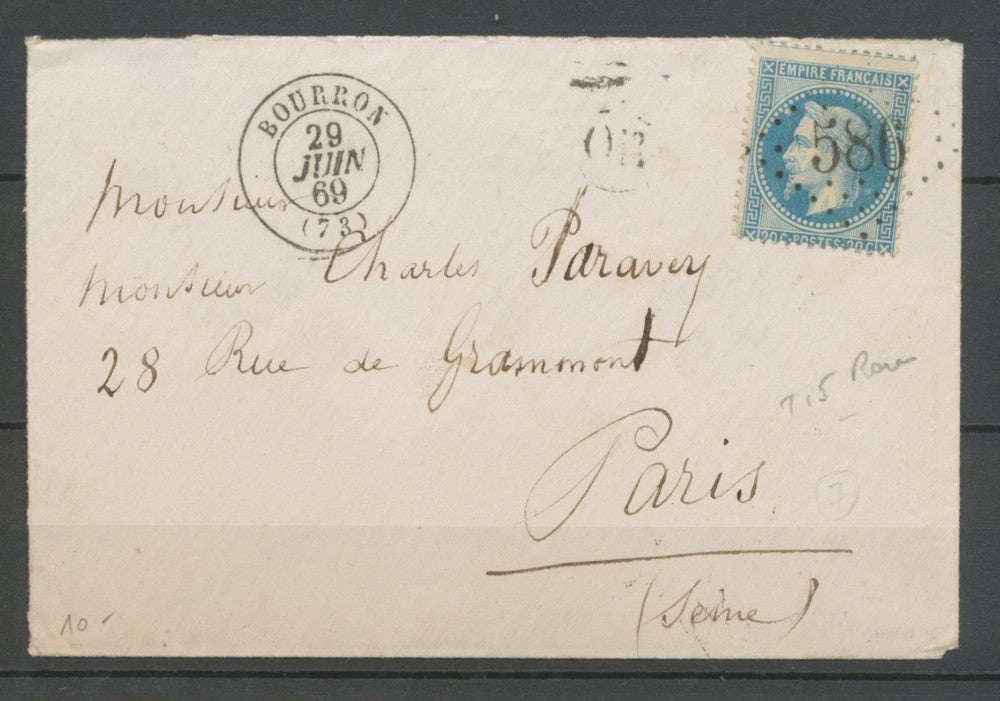 BOURRON
29
JUIN
69
(73)
OR
EMPIRE FRANCAIS
586
20 C POSTES 20 C
Monsieur
Monsieur Charles Paravey
28 Rue de Grammont
Paris
(Seine)
T15 Rare
7
10-